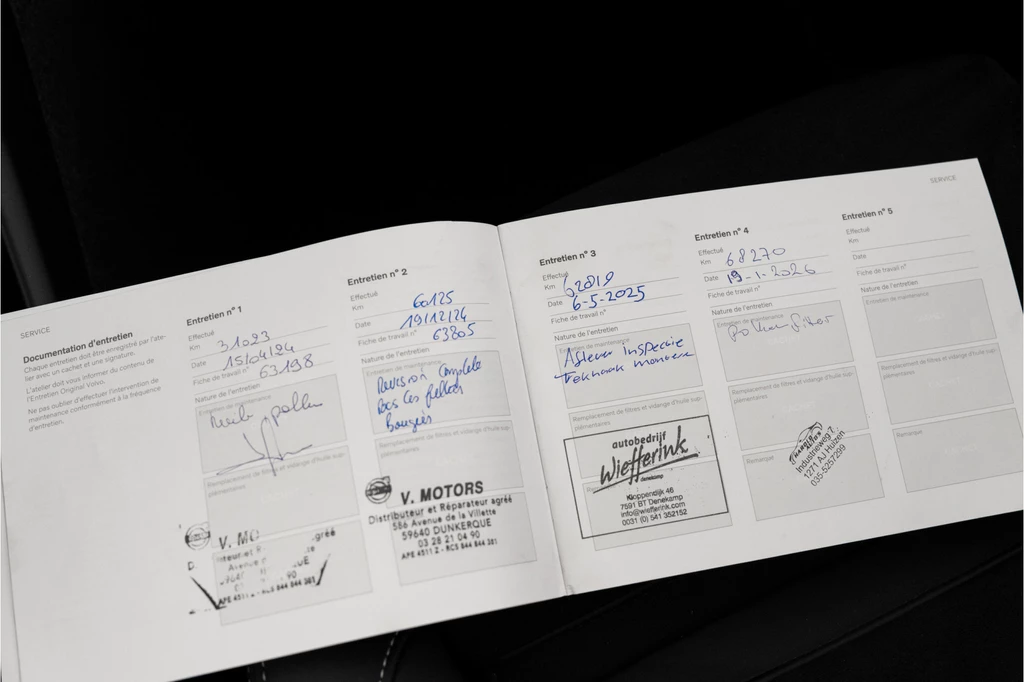 SERVICE
Documentation d'entretien
Chaque entretien doit être enregistré par l'ate-
lier avec un cachet et une signature.
L'atelier doit vous informer du contenu de
l'Entretien Original Volvo.
Ne pas oublier d'effectuer l'intervention de
maintenance conformément à la fréquence
d'entretien.
Entretien n° 1
Effectué
Km 31023
Date 15/04/24
Fiche de travail n° 63198
Nature de l'entretien
Entretien de maintenance
Remplacement de filtres et vidange d'huile sup-
plémentaires
V. MO
APE 4511 - RCS 844 844 381
Entretien n° 2
Effectué
Km 60125
Date 19/12/24
Fiche de travail n° 63805
Nature de l'entretien
Entretien de maintenance
Revision Complete
Tous les filtres
Bougies
Remplacement de filtres et vidange d'huile sup
plémentaires
V. MOTORS
Distributeur et Réparateur agréé
586 Avenue de la Villette
59640 DUNKERQUE
03 28 21 04 90
APE 4511 Z - RCS 844 844 381
Entretien n° 3
Effectué
Km 62819
Date 6-5-2025
Fiche de travail n°
Nature de l'entretien
Entretien de maintenance
Aflever inspectie
Trekhaak monteren
Remplacement de filtres et vidange d'huile sup-
plémentaires
autobedrijf
Wiefferink
denekamp
Kloppendijk 46
7591 BT Denekamp
info@wiefferink.com
0031 (0) 541 352152
Entretien n° 4
Effectué
Km 68270
Date 19-1-2026
Fiche de travail n°
Nature de l'entretien
Entretien de maintenance
Remplacement de filtres et vidange d'huile sup-
plémentaires
Remarque
Industrieweg 7
1271 AJ Huizen
035-5257299
SERVICE
Entretien n° 5
Effectué
Km
Date
Fiche de travail n°
Nature de l'entretien
Entretien de maintenance
Remplacement de filtres et vidange d'huile sup-
plémentaires
Remarque